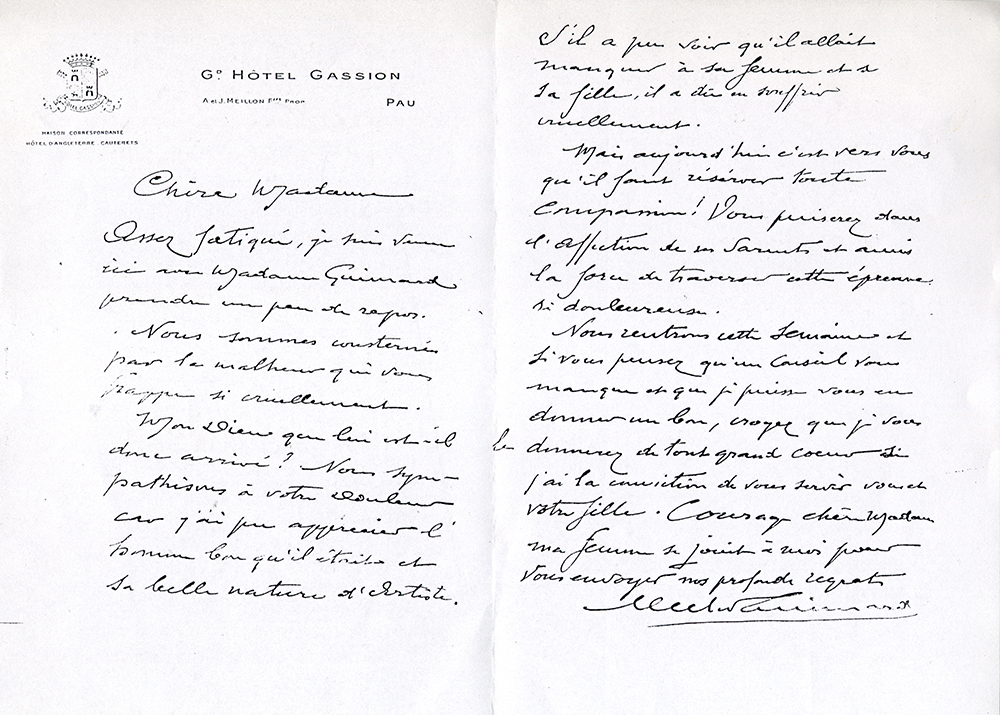 HOTEL GASSION
Gᴰ HÔTEL GASSION
A et J. MEILLON Fres PROP
PAU
MAISON CORRESPONDANTE
HÔTEL D'ANGLETERRE CAUTERETS
Chère Madame
Assez fatigué, je suis venu
ici avec Madame Guimard
prendre un peu de repos.
Nous sommes consternés
par le malheur qui vous
frappe si cruellement.
Mon Dieu que lui est-il
donc arrivé ? Nous sym-
pathisons à votre douleur
car j'ai pu apprécier l'
homme bon qu'il était et
sa belle nature d'Artiste.
S'il a pu voir qu'il allait
manquer à sa femme et à
sa fille, il a dû en souffrir
cruellement.
Mais aujourd'hui c'est vers vous
qu'il faut réserver toute
compassion ! Vous puiserez dans
l'affection de vos parents et amis
la force de traverser cette épreuve
si douloureuse.
Nous rentrons cette semaine et
si vous pensez qu'un conseil vous
manque et que je puisse vous en
donner un bon, croyez que je vous
le donnerez de tout grand coeur si
j'ai la conviction de vous servir vous et
votre fille. Courage chère Madame
ma femme se joint à moi pour
vous envoyer nos profonds regrets
Hector Guimard